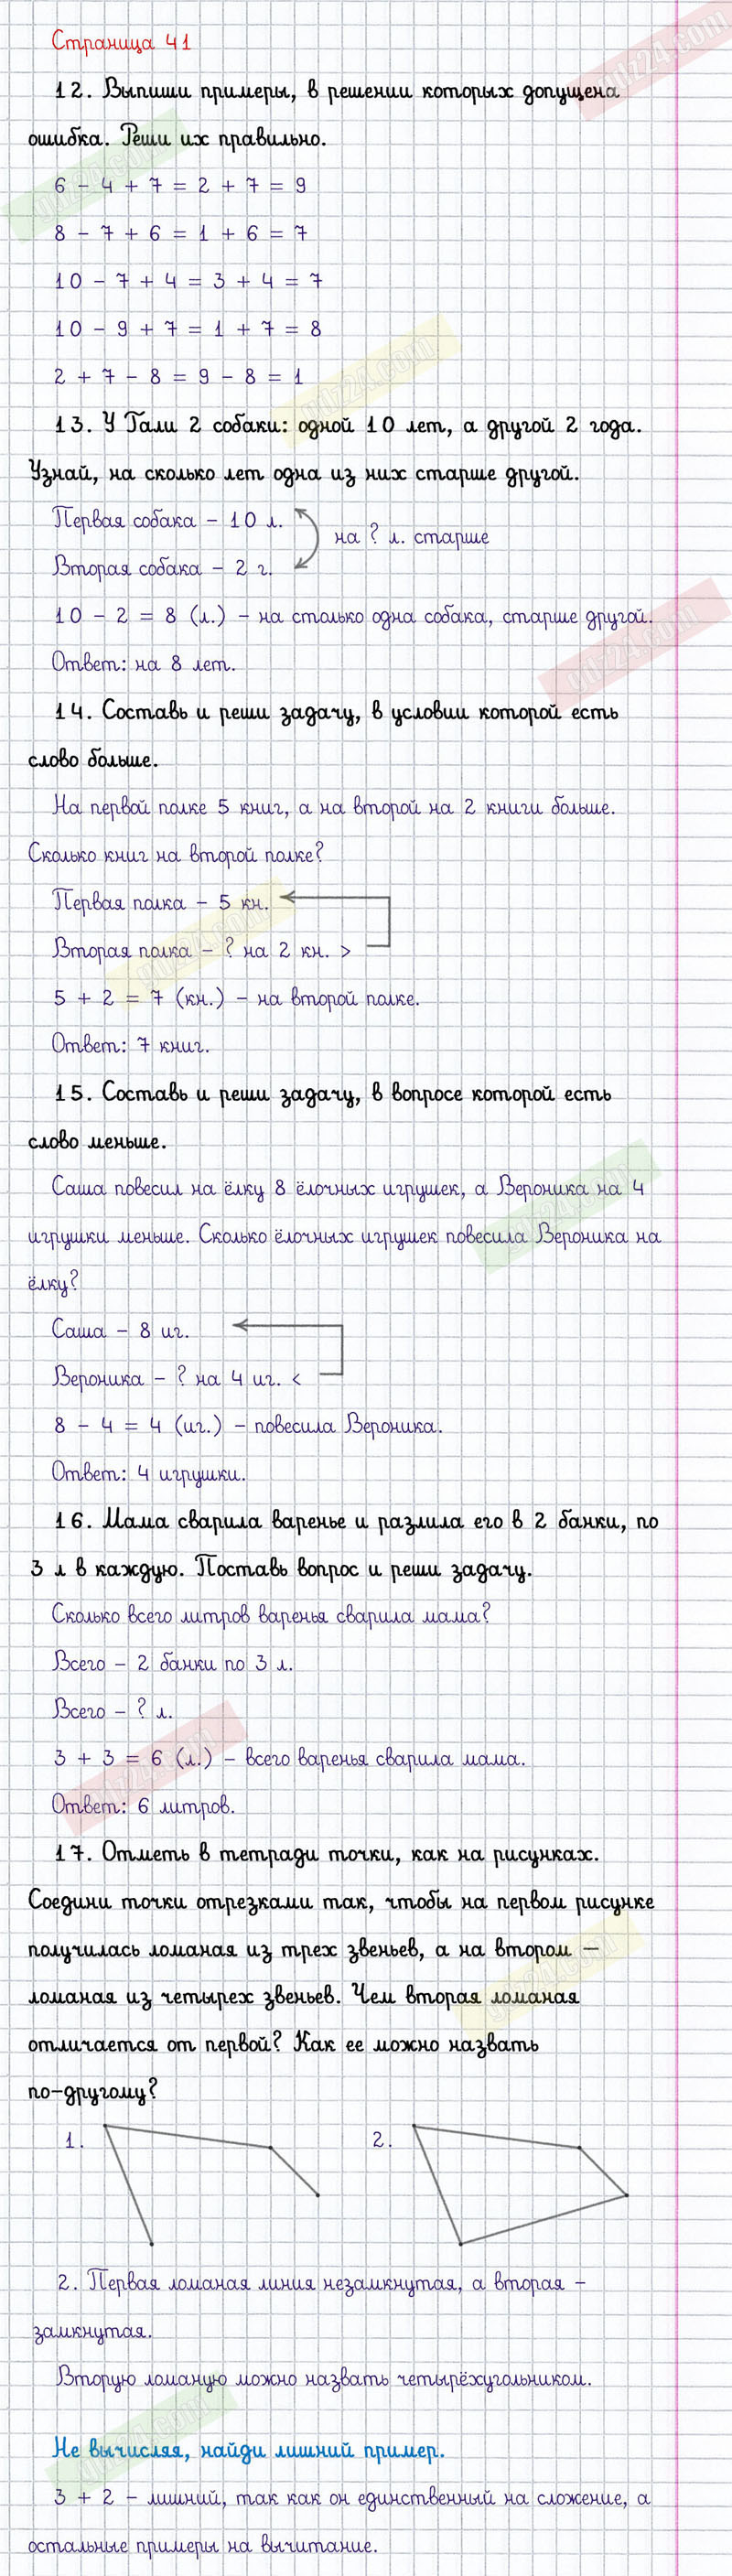 Страница 41
12. Выпиши примеры, в решении которых допущена
ошибка. Реши их правильно.
6 - 4 + 7 = 2 + 7 = 9
8 - 7 + 6 = 1 + 6 = 7
10 - 7 + 4 = 3 + 4 = 7
10 - 9 + 7 = 1 + 7 = 8
2 + 7 - 8 = 9 - 8 = 1
13. У Гали 2 собаки: одной 10 лет, а другой 2 года.
Узнай, на сколько лет одна из них старше другой.
Первая собака - 10 л.
на ? л. старше
Вторая собака - 2 г.
10 - 2 = 8 (л.) - на столько одна собака, старше другой.
Ответ: на 8 лет.
14. Составь и реши задачу, в условии которой есть
слово больше.
На первой полке 5 книг, а на второй на 2 книги больше.
Сколько книг на второй полке?
Первая полка - 5 кн.
Вторая полка - ? на 2 кн. >
5 + 2 = 7 (кн.) - на второй полке.
Ответ: 7 книг.
15. Составь и реши задачу, в вопросе которой есть
слово меньше.
Саша повесил на ёлку 8 ёлочных игрушек, а Вероника на 4
игрушки меньше. Сколько ёлочных игрушек повесила Вероника на
ёлку?
Саша - 8 иг.
Вероника - ? на 4 иг. <
8 - 4 = 4 (иг.) - повесила Вероника.
Ответ: 4 игрушки.
16. Мама сварила варенье и разлила его в 2 банки, по
3 л в каждую. Поставь вопрос и реши задачу.
Сколько всего литров варенья сварила мама?
Всего - 2 банки по 3 л.
Всего - ? л.
3 + 3 = 6 (л.) - всего варенья сварила мама.
Ответ: 6 литров.
17. Отметь в тетради точки, как на рисунках.
Соедини точки отрезками так, чтобы на первом рисунке
получилась ломаная из трех звеньев, а на втором —
ломаная из четырех звеньев. Чем вторая ломаная
отличается от первой? Как ее можно назвать
по-другому?
1. 2.
2. Первая ломаная линия незамкнутая, а вторая -
замкнутая.
Вторую ломаную можно назвать четырёхугольником.
Не вычисляя, найди лишний пример.
3 + 2 - лишний, так как он единственный на сложение, а
остальные примеры на вычитание.
gdz24.com
gdz24.com
gdz24.com
gdz24.com
gdz24.com
gdz24.com
gdz24.com
gdz24.com
gdz24.com